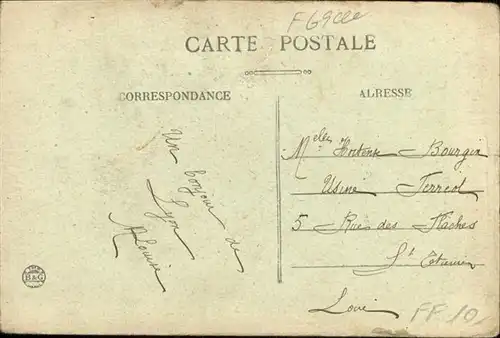 F69cce
CARTE POSTALE
CORRESPONDANCE
ADRESSE
Un bonjour de
Lyon
A Louise
Melle Hortense Bourgin
Usine Ferréol
5 Rue des Flaches
St Etienne
Loire
FF 10
B&G